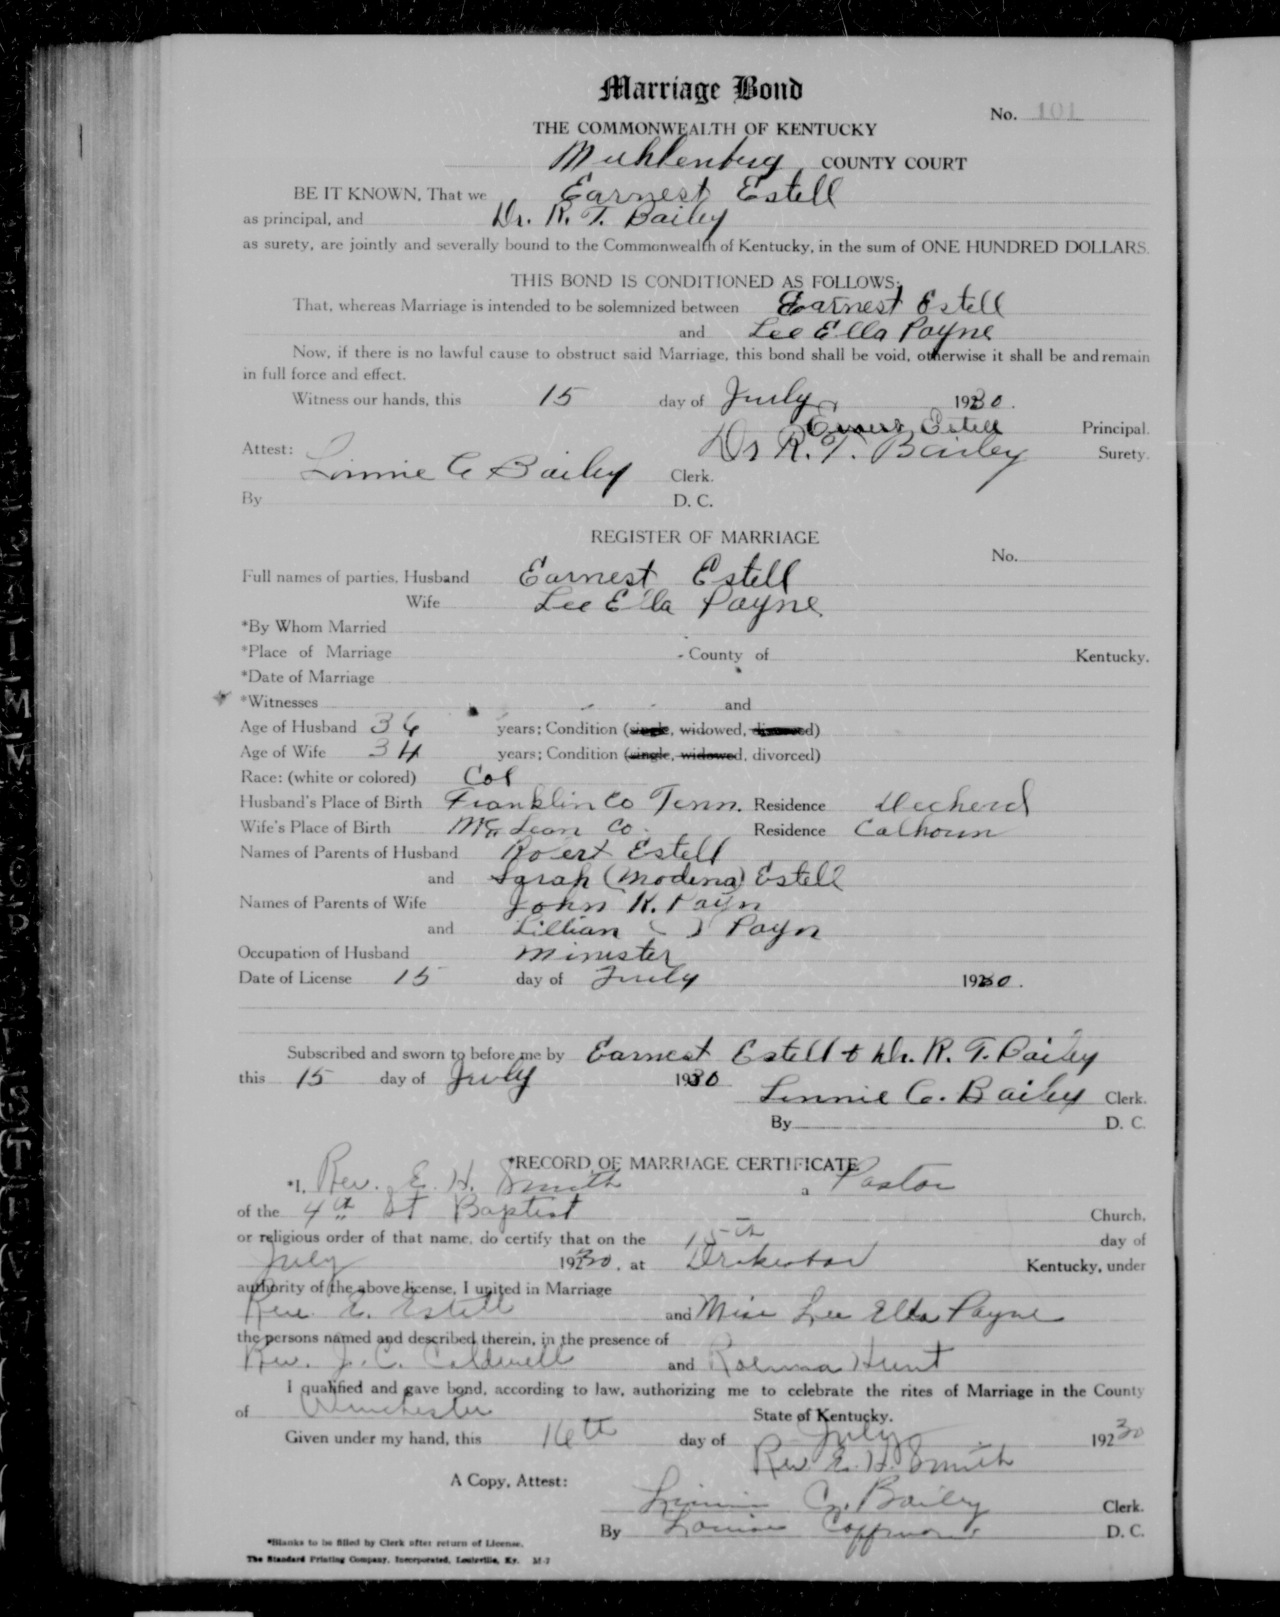 Marriage Bond
No. 101
THE COMMONWEALTH OF KENTUCKY
Muhlenberg COUNTY COURT
BE IT KNOWN, That we Earnest Estell
as principal, and Dr. R. T. Bailey
as surety, are jointly and severally bound to the Commonwealth of Kentucky, in the sum of ONE HUNDRED DOLLARS.
THIS BOND IS CONDITIONED AS FOLLOWS:
That, whereas Marriage is intended to be solemnized between Earnest Estell
and Lee Ella Payne
Now, if there is no lawful cause to obstruct said Marriage, this bond shall be void, otherwise it shall be and remain
in full force and effect.
Witness our hands, this 15 day of July, 1930.
Estell Principal.
Dr R. T. Bailey Surety.
Attest: Linnie C Bailey Clerk.
By D. C.
REGISTER OF MARRIAGE
No.
Full names of parties, Husband Earnest Estell
Wife Lee Ella Payne
*By Whom Married
*Place of Marriage County of Kentucky.
*Date of Marriage
*Witnesses and
Age of Husband 36 years; Condition (single, widowed, divorced)
Age of Wife 34 years; Condition (single, widowed, divorced)
Race: (white or colored) Col
Husband's Place of Birth Franklin Co Tenn. Residence Decherd
Wife's Place of Birth McLean Co. Residence Calhoun
Names of Parents of Husband Robert Estell
and Sarah (Modena) Estell
Names of Parents of Wife John K. Payn
and Lillian ( ) Payn
Occupation of Husband Minister
Date of License 15 day of July 1930.
Subscribed and sworn to before me by Earnest Estell & Dr. R. T. Bailey
this 15 day of July 1930
Linnie C. Bailey Clerk.
By D. C.
*RECORD OF MARRIAGE CERTIFICATE
*I, Rev. E. H. Smith a Pastor
of the 4th St Baptist Church,
or religious order of that name, do certify that on the 15th day of
July 1930, at Drakesboro Kentucky, under
authority of the above license, I united in Marriage
Rev. E. Estell and Miss Lee Ella Payne
the persons named and described therein, in the presence of
Rev. J. C. Caldwell and Hunt
I qualified and gave bond, according to law, authorizing me to celebrate the rites of Marriage in the County
of Winchester State of Kentucky.
Given under my hand, this 16th day of July 1930
Rev E. H. Smith
A Copy, Attest:
Linnie C. Bailey Clerk.
By Louise Coffman D. C.
*Blanks to be filled by Clerk after return of License.
The Standard Printing Company, Incorporated, Louisville, Ky. M-7